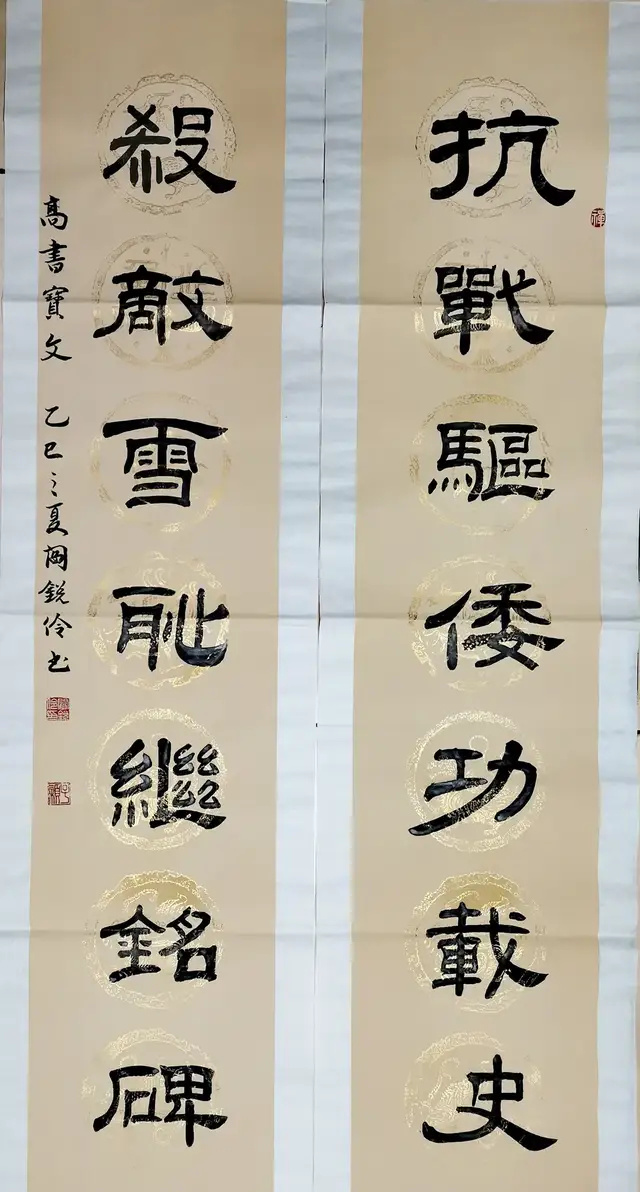 抗戰驅倭功載史
殺敵雪耻繼銘碑
高書寶文 乙巳之夏 銳伶书